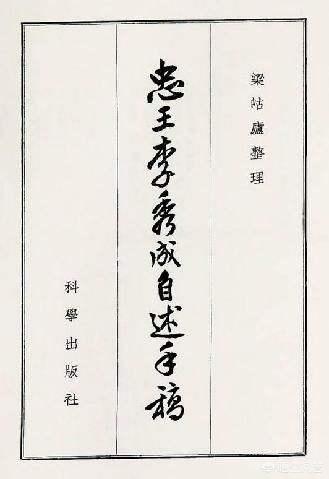 梁岵廬整理
忠王李秀成自述手稿
科學出版社